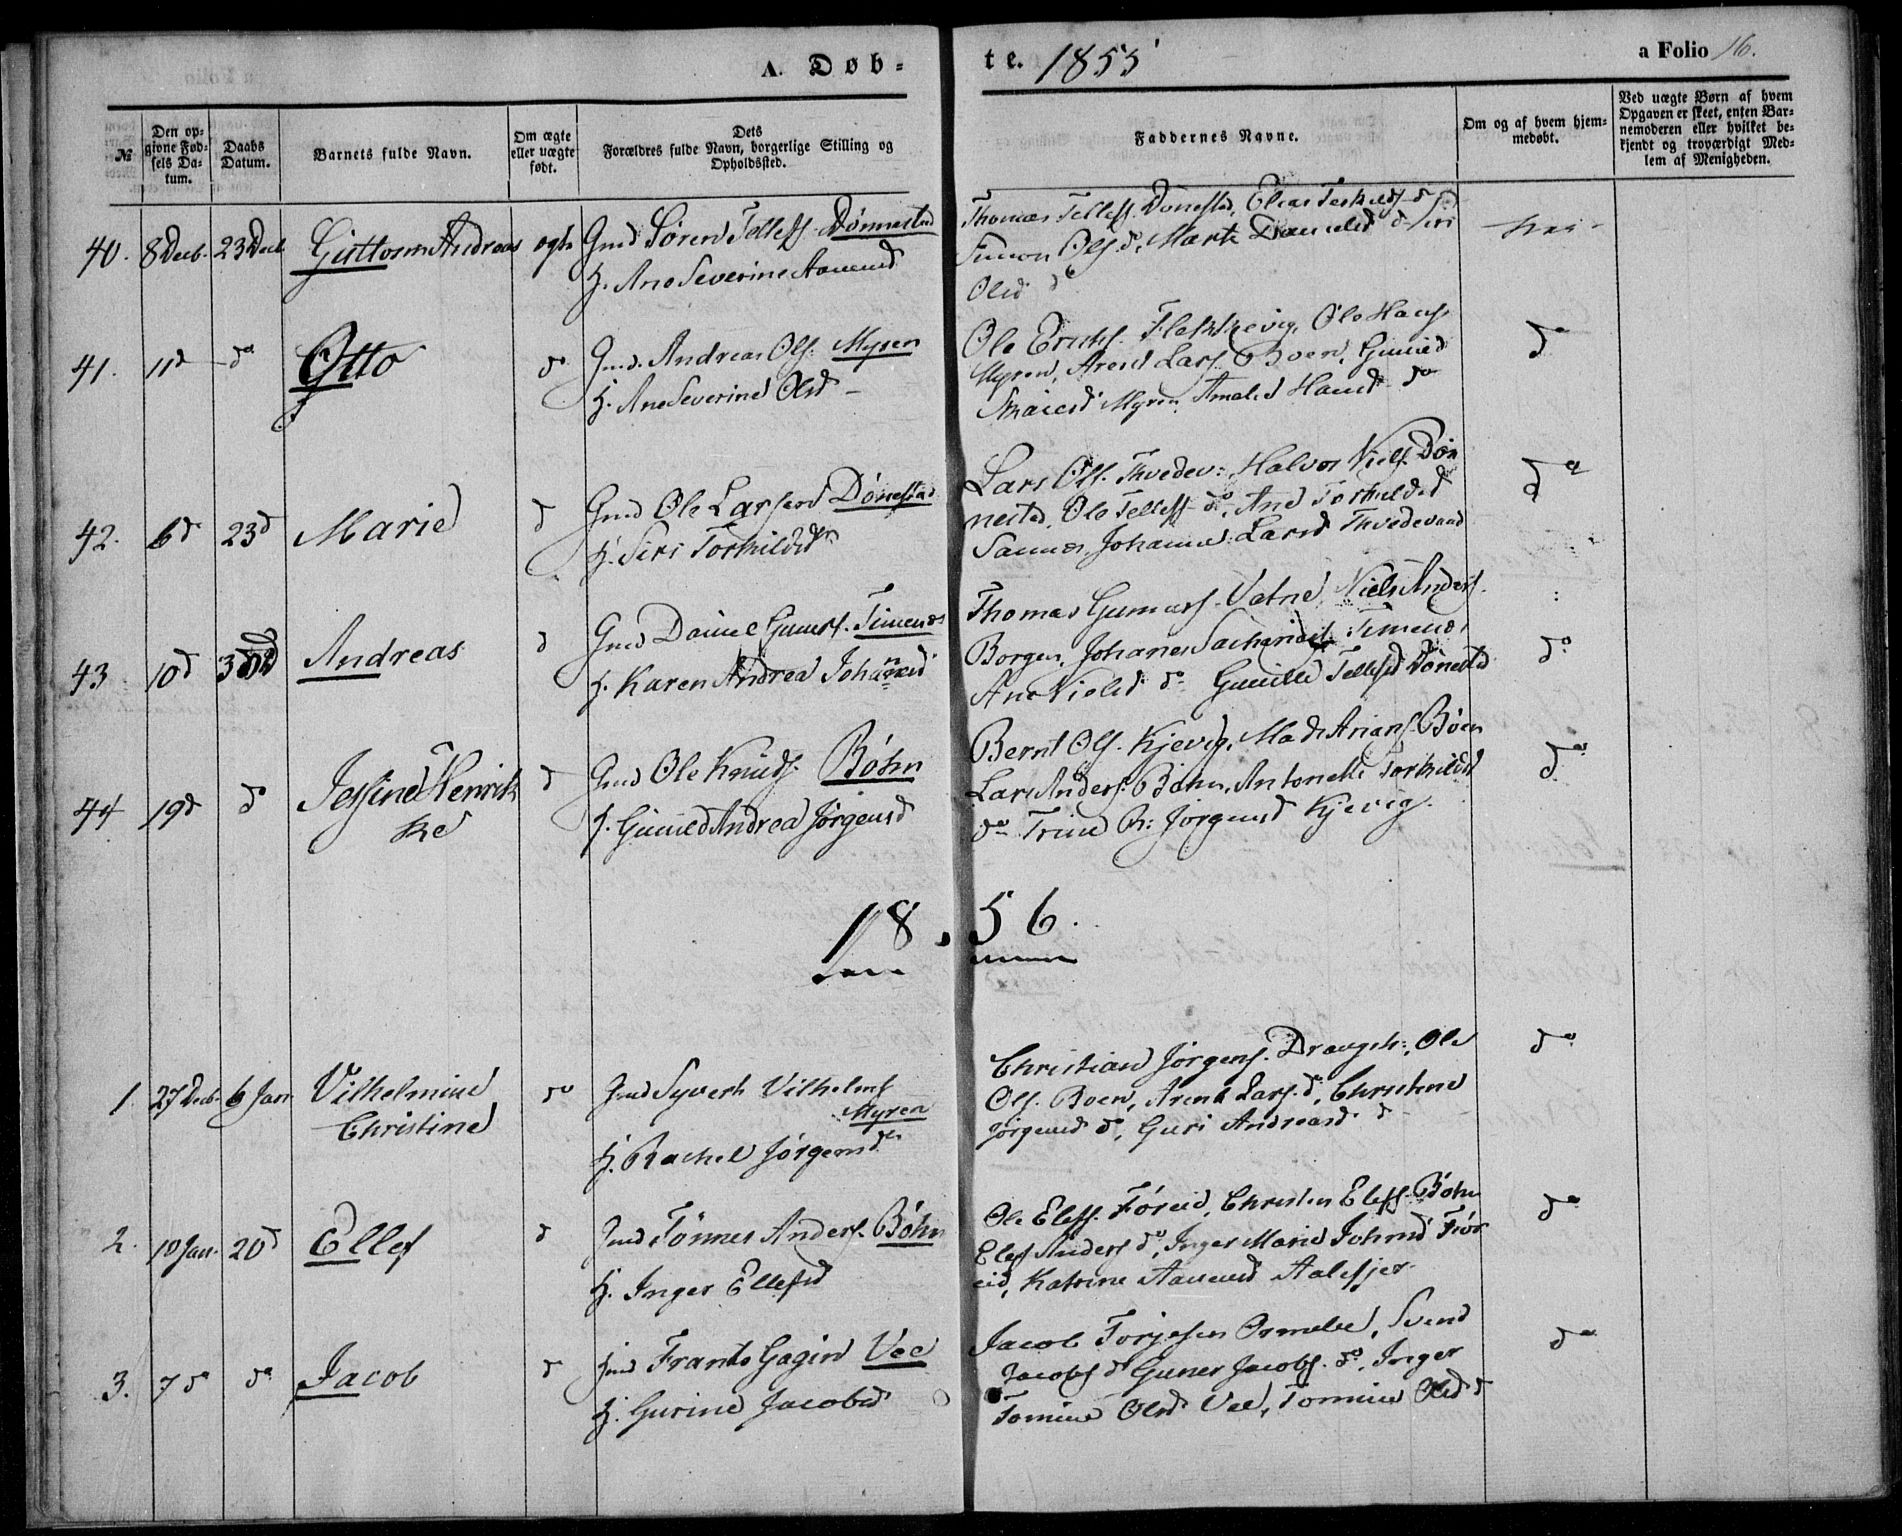 A. Døb-
te. 1855
a Folio 16.
№
Den op-
givne Fød-
sels Da-
tum.
Daabs
Datum.
Barnets fulde Navn.
Om ægte
eller uægte
født.
Dets
Forældres fulde Navn, borgerlige Stilling og
Opholdssted.
Faddernes Navne.
Om og af hvem hjem-
medøbt.
Ved uægte Børn af hvem
Opgaven er skeet, enten Bar-
nemoderen eller hvilket be-
kjendt og troværdigt Med-
lem af Menigheden.
40. 8 Decb. 23 Decb Guttorm Andreas ægte Gmd Søren Tellefs. Dønnestad
H. Ane Severine Aanensd
Thomas Tellefs. Donestad, Elias Terkelds d
Simon Ols. do, Marte Danielsd do Siri
Olsd do
Nei
41. 11 d do Otto do Gmd. Andreas Ols. Myren
H. Ane Severine Olsd
Ole Erichs. Flakkevig, Ole Hans
Myren, Arent Lars. Boen, Guned
Myren, Amalie Hansd do
do
42. 6 d 23 d Marie d Gmd Ole Larsen Dønestad
H. Siri Torkildsd
Lars Ols. Thvedev: Halvor Niels. Døn
nestad, Ole Tellefs do, Ane Torkildsd
Saanes, Johanne Larsd Thvedevand
do
43 10 d Andreas d Gmd Daniel Guners. Timenes
H. Karen Andrea Johannesd
Thomas Gunnars. Vatne, Niels Anders.
Borgen, Johanes Sacharias Timenes,
Ane Nielsd do Gunille Tellefsd Dønestad
do
44 19 d do Jessine Henrik
ke
d Gmd Ole Knuds. Bøhn
H. Guned Andrea Jørgensd
Bernt Ols. Kjevig, Mads Arians. Bøen
Lars Anders. Bøhn, Antonette Torkildsd
do Trine Jørgensd Kjevig.
do
1856.
1 27 Decb. 6 Jan Vilhelmine
Christine
do Jmd Syvert Vilhelms
Myren
H. Rachel Jørgensd
Christian Jørgens. Draugeh:, Ole
Ols. Boen, Arent Lars. do, Christine
Jørgensd do, Guri Andreasd d
do
2. 10 Jan. 20 d Ellef d Jmd Tønnes Anders. Bøhn
H. Inger Ellefsd
Ole Elefs. Føreid, Christen Elefs. Bøhn
Elef Anders do, Inger Marie Johnsd Før
eid, Katrine Aanensd Aalefjer
do
3. 7 d do Jacob d Jmd Frants Gagin Vee
H. Gurine Jacobsd
Jacob Torjesen Osmelie, Svend
Jacobs do Guner Jacobs. do, Inger
Tomine Olsd Vee, Tomine Olsd d
do